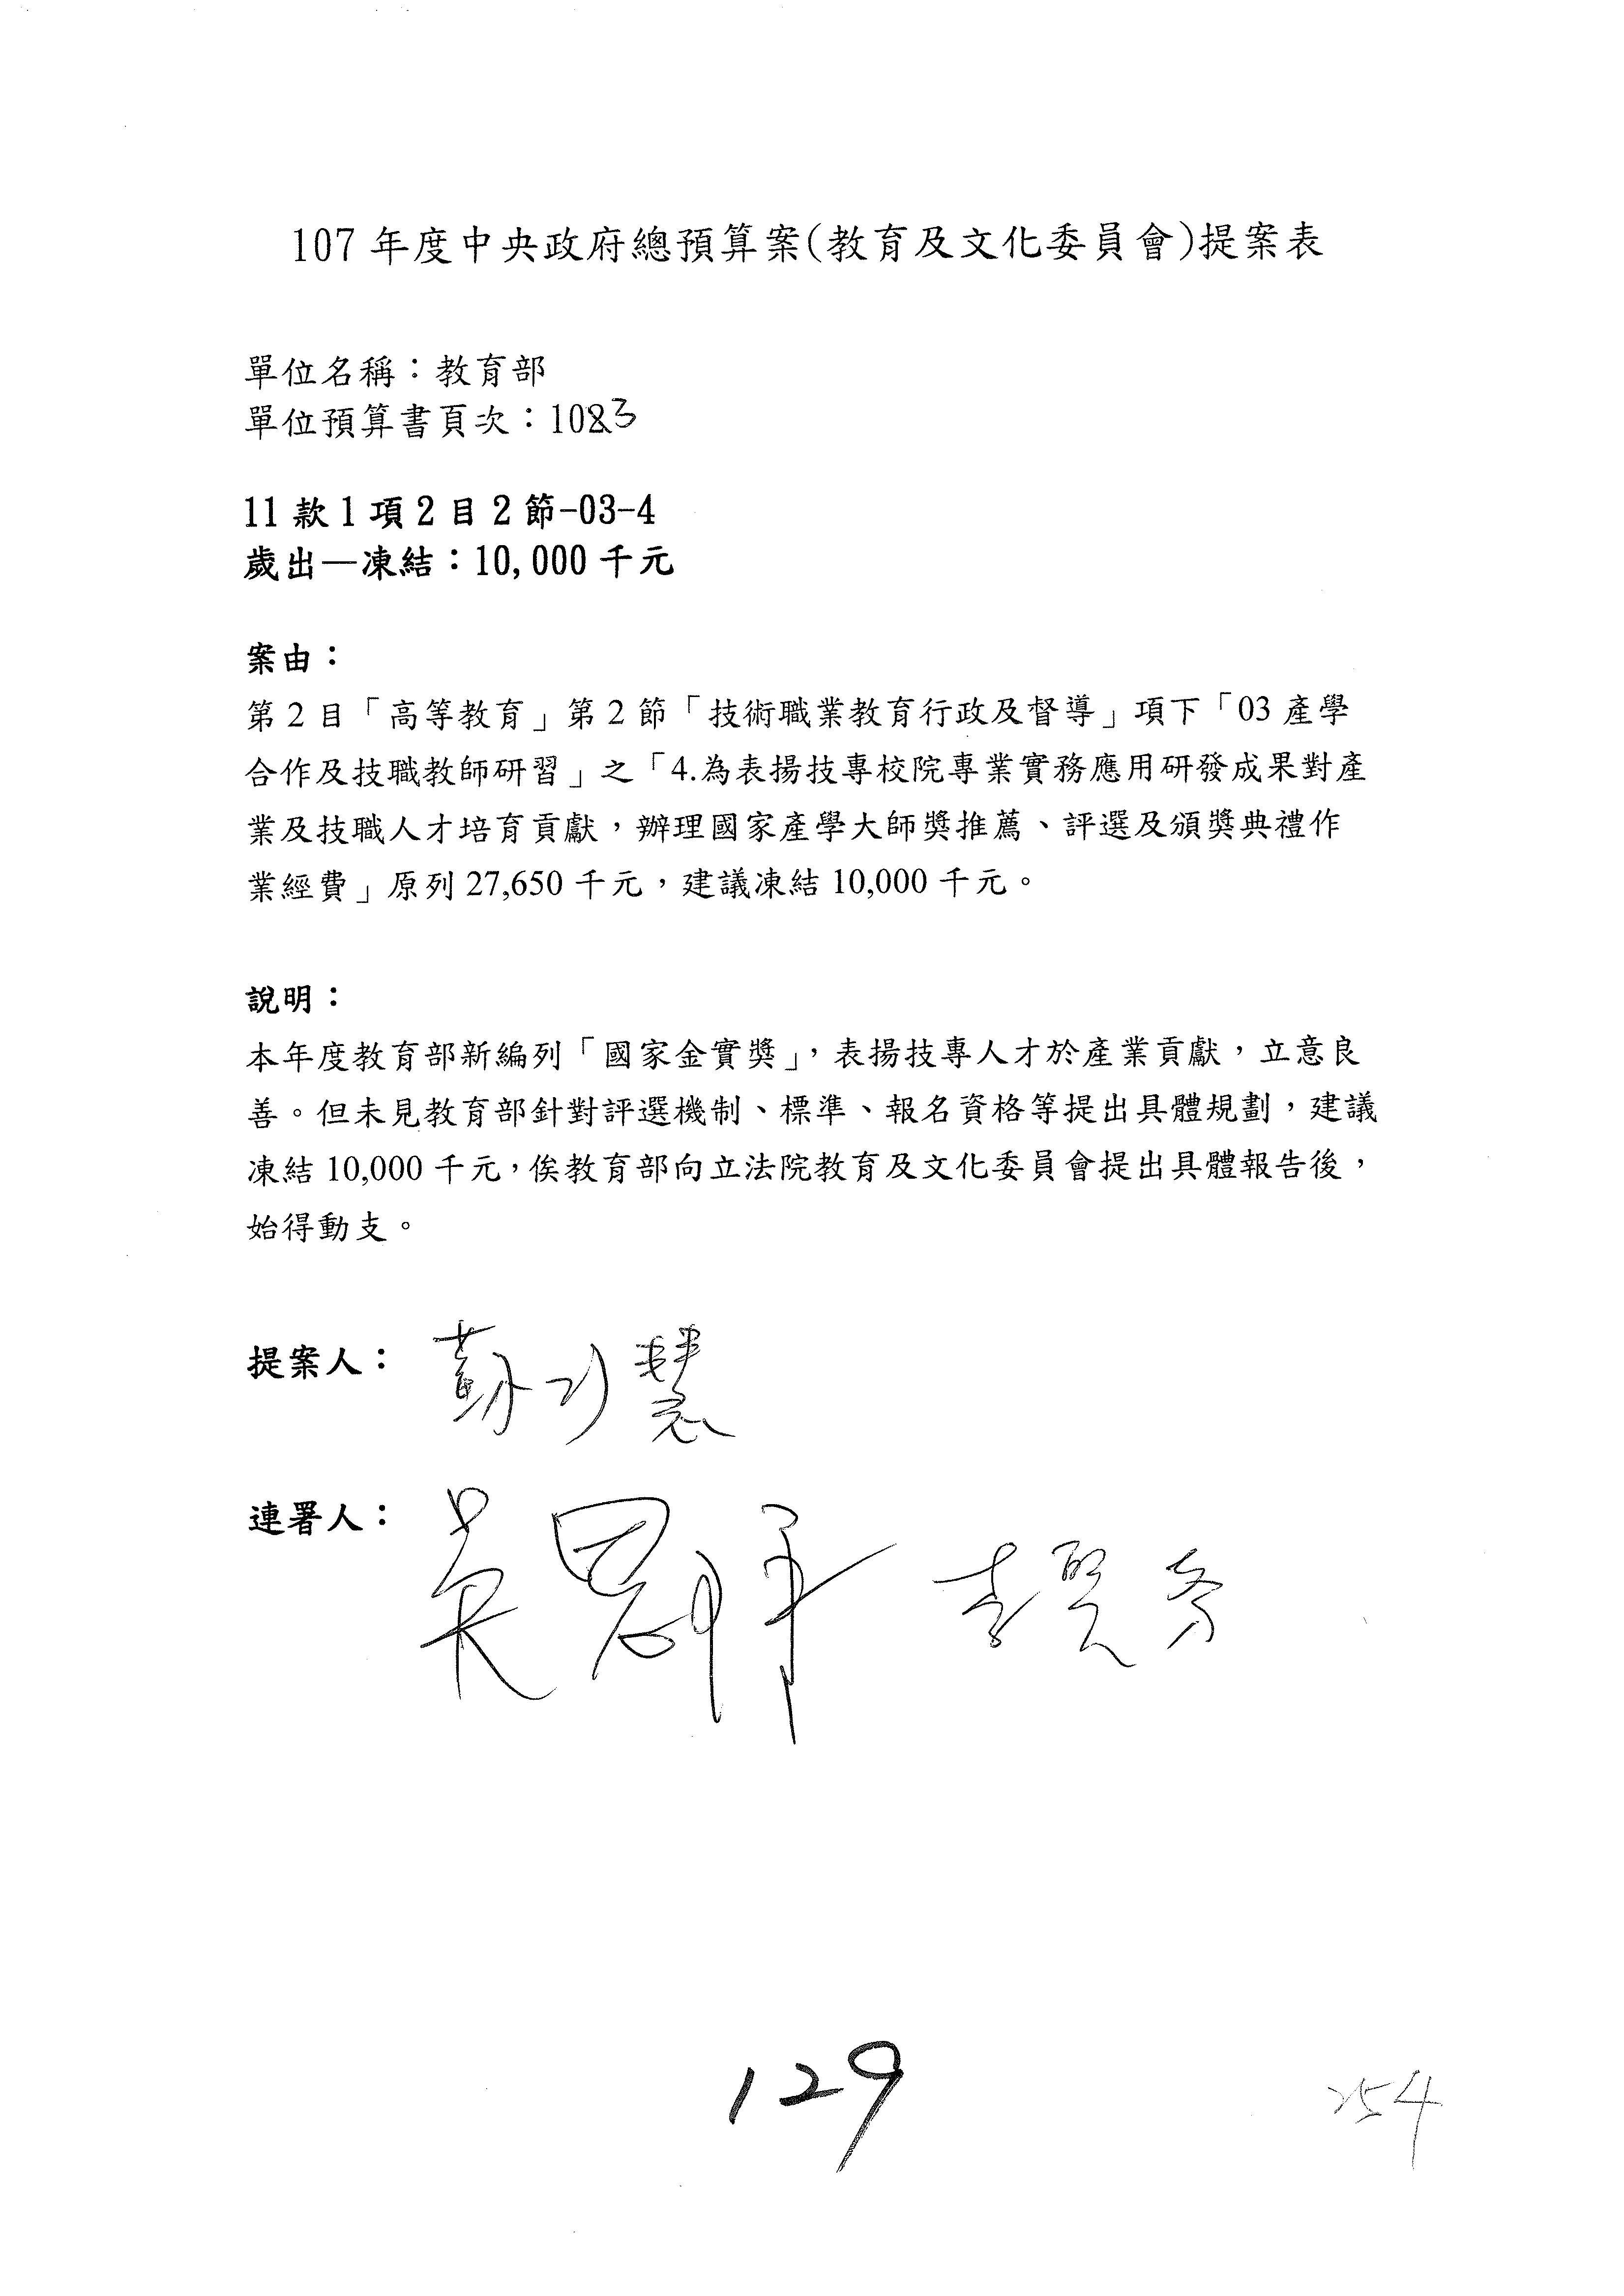 107 年度中央政府總預算案(教育及文化委員會)提案表
單位名稱：教育部
單位預算書頁次：1083
11 款 1 項 2 目 2 節-03-4
歲出—凍結：10,000 千元
案由：
第 2 目「高等教育」第 2 節「技術職業教育行政及督導」項下「03 產學
合作及技職教師研習」之「4.為表揚技專校院專業實務應用研發成果對產
業及技職人才培育貢獻，辦理國家產學大師獎推薦、評選及頒獎典禮作
業經費」原列 27,650 千元，建議凍結 10,000 千元。
說明：
本年度教育部新編列「國家金實獎」，表揚技專人才於產業貢獻，立意良
善。但未見教育部針對評選機制、標準、報名資格等提出具體規劃，建議
凍結 10,000 千元，俟教育部向立法院教育及文化委員會提出具體報告後，
始得動支。
提案人：蘇巧慧
連署人：吳思瑤 李麗芬
129
254